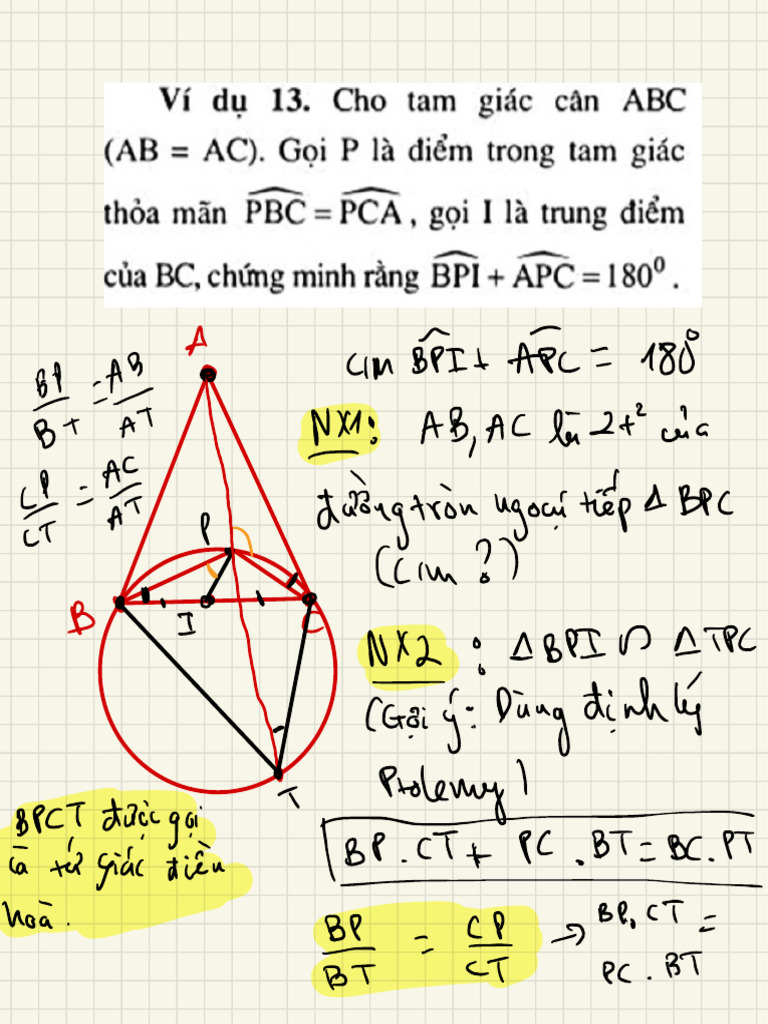 Ví dụ 13. Cho tam giác cân ABC
(AB = AC). Gọi P là điểm trong tam giác
thỏa mãn \widehat{PBC} = \widehat{PCA}, gọi I là trung điểm
của BC, chứng minh rằng \widehat{BPI} + \widehat{APC} = 180⁰.
A
BP/BT = AB/AT
CP/CT = AC/AT
P
B
I
C
T
BPCT được gọi
là tứ giác điều
hoà.
CM \widehat{BPI} + \widehat{APC} = 180⁰
NX1: AB, AC là 2t² của
đường tròn ngoại tiếp Δ BPC
(CM ?)
NX2: Δ BPI ∽ Δ TPC
(Gợi ý: Dùng định lý
Ptolemy)
BP.CT + PC.BT = BC.PT
BP/BT = CP/CT → BP.CT =
PC.BT